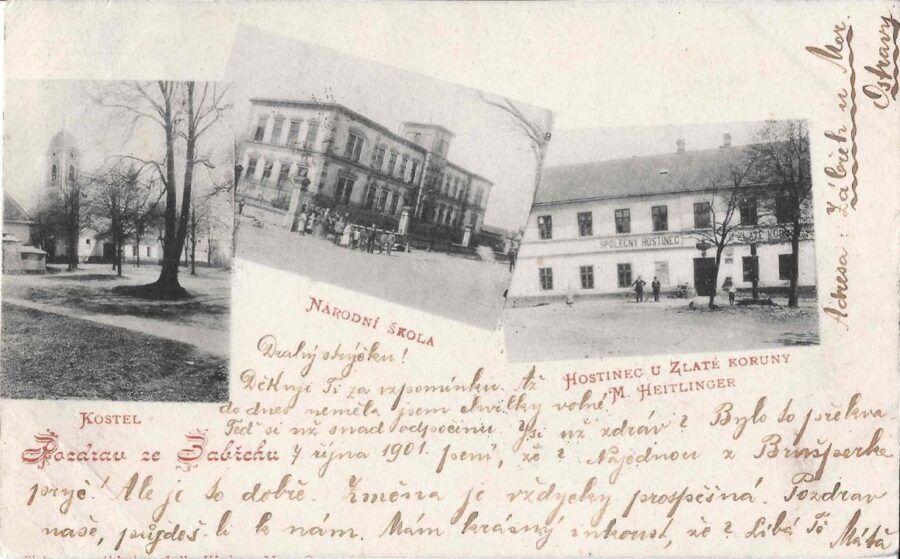 SPOLEČNÝ HOSTINEC
NÁRODNÍ ŠKOLA
HOSTINEC U ZLATÉ KORUNY
M. HEITLINGER
KOSTEL
Pozdrav ze Zábřehu
Adresa: Zábřeh u Mor.
Ostravy.
Drahý strýčku!
Děkuji Ti za vzpomínku. Až
do dnes neměla jsem chvilky volné.
Teď si už snad odpočinu. Jsi už zdráv? Bylo to překva-
7 října 1901. pení, že? Najednou z Brušperka
pryč! Ale je to dobře. Změna je vždycky prospěšná. Pozdrav
naše, půjdeš-li k nám. Mám krásný inkoust, že? Líbá Tě